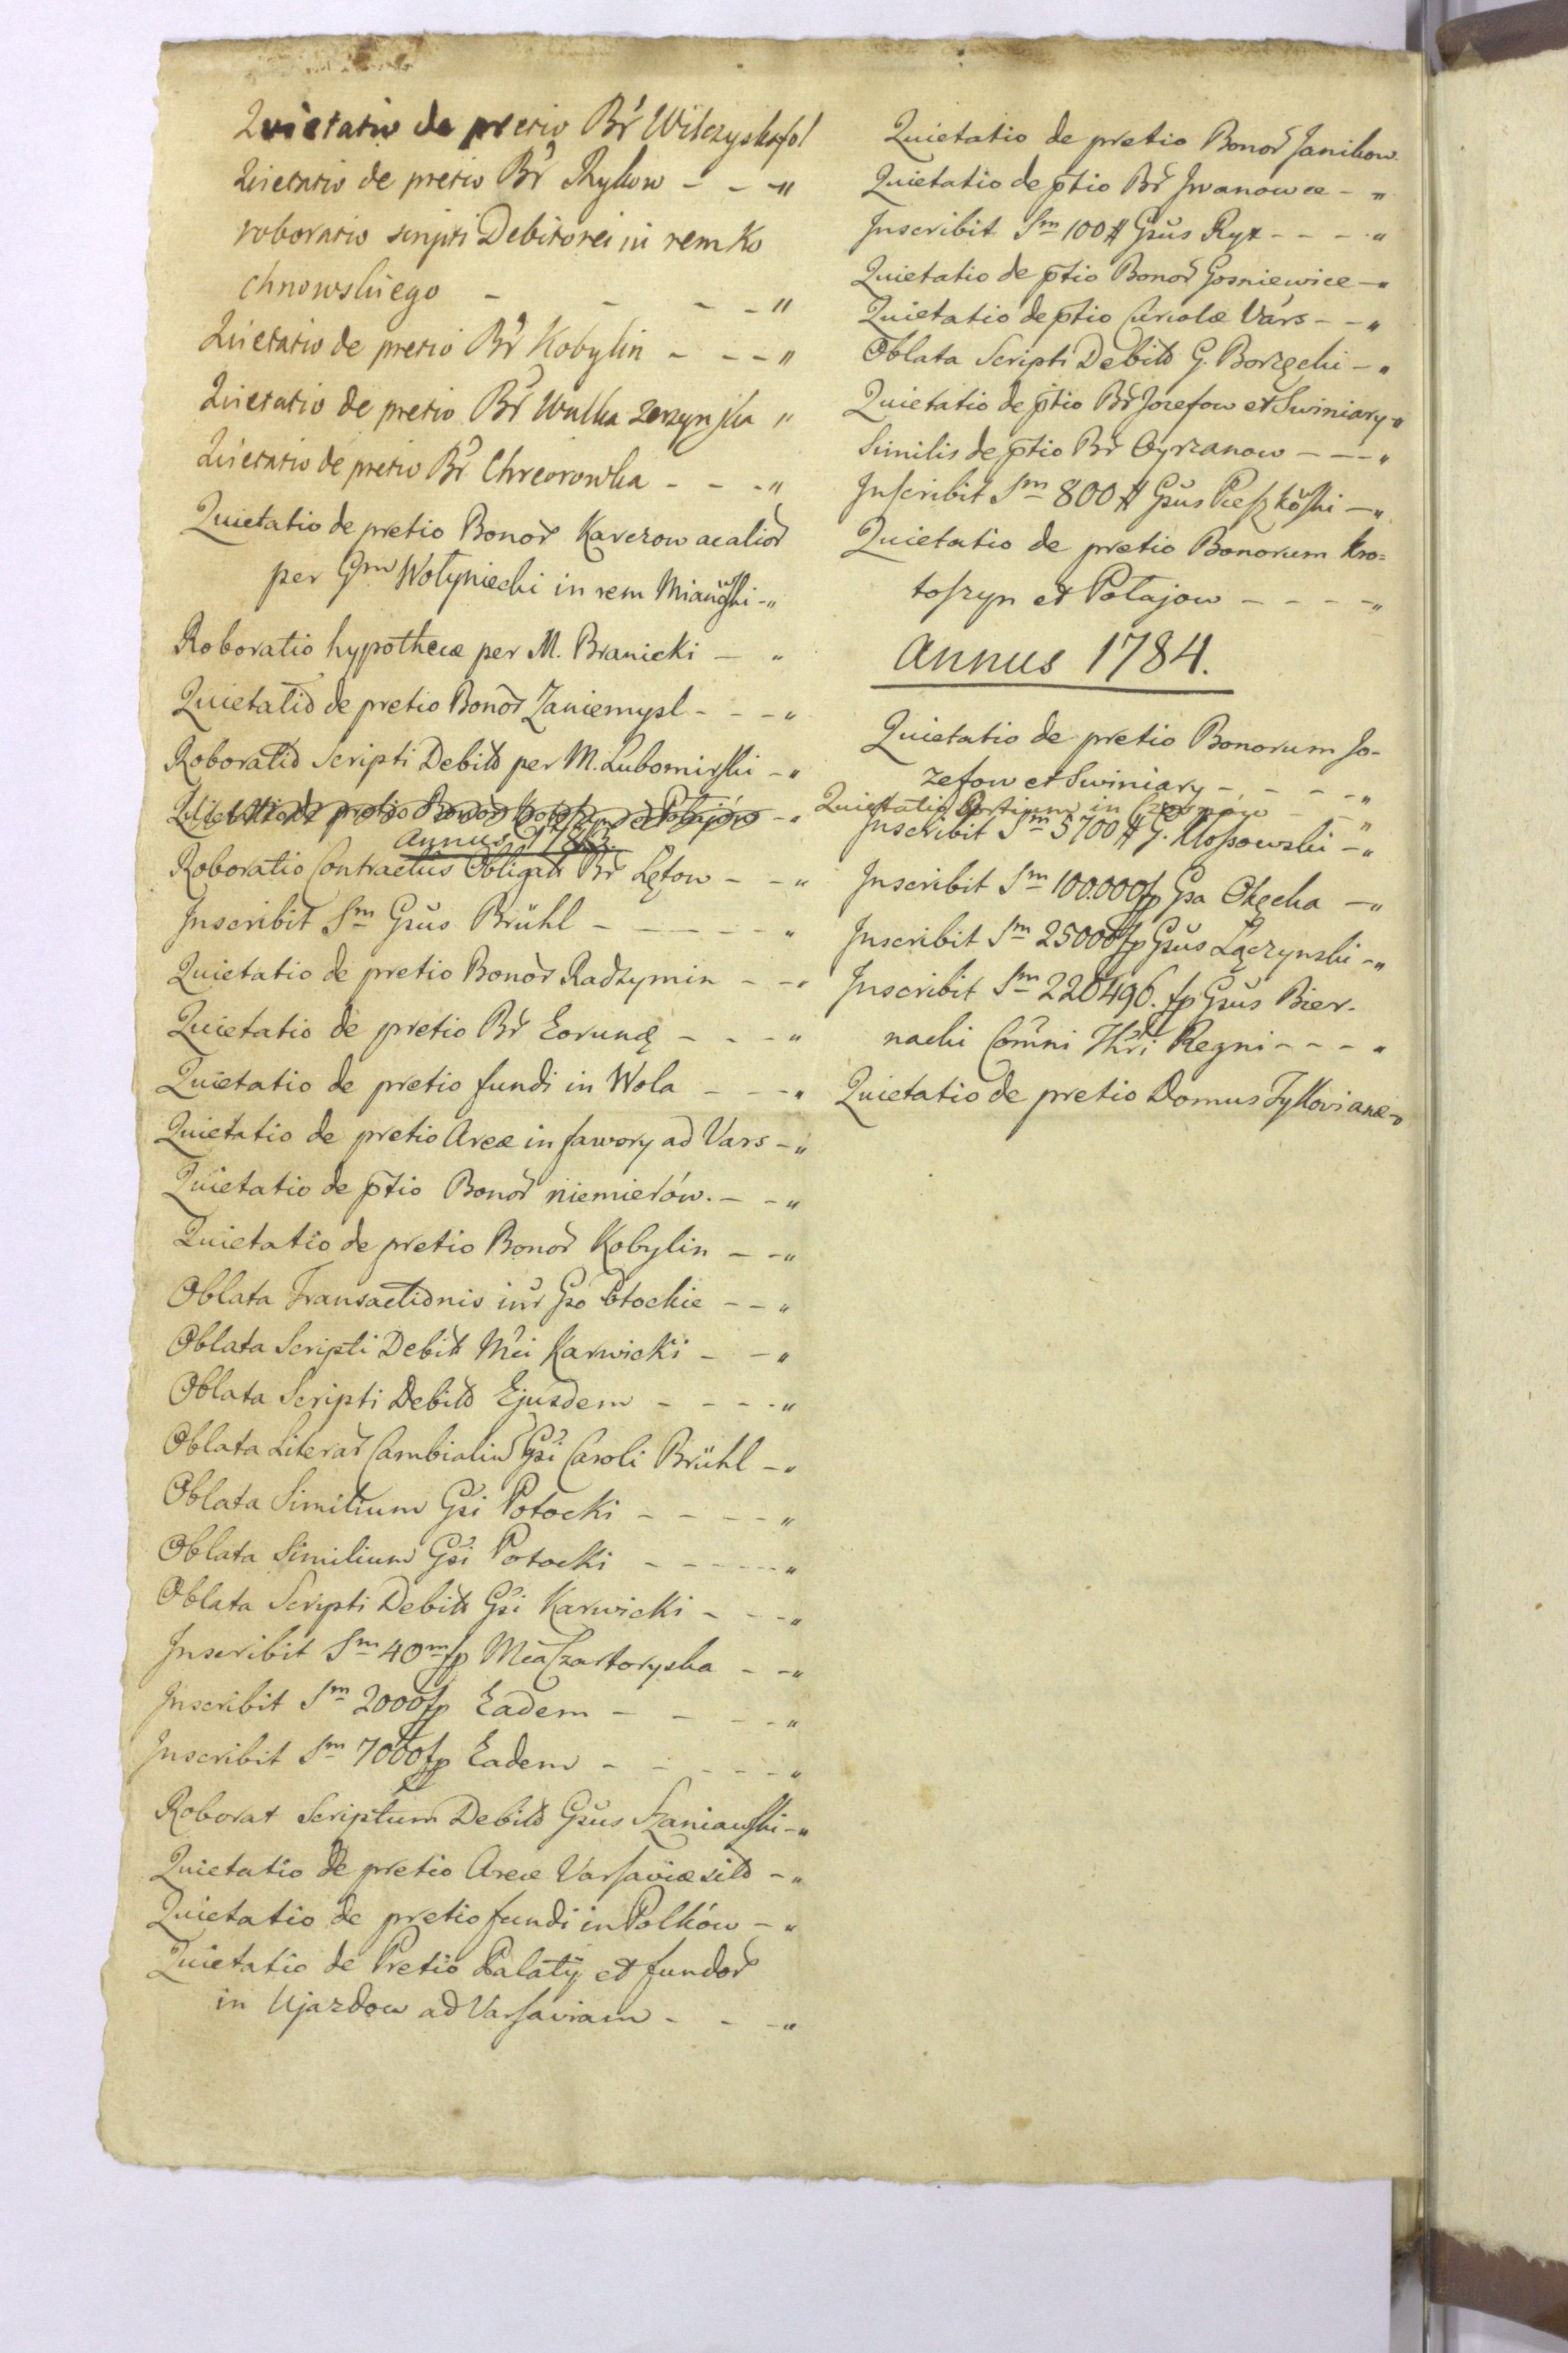 Quietatio de pretio Br̃ Wilczyska fol
Quietatio de pretio Br̃ Rykow - - - "
roboratio scripti Debitorei in rem Ko
chnowskiego - - - - "
Quietatio de pretio Br̃ Kobylin - - - "
Quietatio de pretio Br̃ Wulka zerzynska "
Quietatio de pretio Br̃ - - - "
Quietatio de pretio Bonor̃ Karczow ac alior̃
per Gm Wołyniecki in rem - "
Roboratio hypothecæ per M. Branicki - "
Quietatio de pretio Bonor̃ Zaniemysl - - - "
Roboratio Scripti Debitt per M. Lubomirski - "
Quietatio de pretio Bonor̃ Krotoszyn et Połajów - "
Annus 1783.
Roboratio Contractus Obligatt Br̃ Lętow - - "
Inscribit Sm Gsus Brühl - - - - - "
Quietatio de pretio Bonor̃ Radzymin - - "
Quietatio de pretio Br̃ Eorund - - - "
Quietatio de pretio fundi in Wola - - - "
Quietatio de pretio Areæ in fawory ad Vars - "
Quietatio de p̃tio Bonor̃ niemierów. - - "
Quietatio de pretio Bonor̃ Kobylin - - "
Oblata Transactionis int̃r Gso Potockie - - "
Oblata Scripti Debitt Mci Karwicki - - "
Oblata Scripti Debitt Ejusdem - - - - "
Oblata Literar̃ Cambialiu Gsi Caroli Brühl - "
Oblata Similium Gsi Potocki - - - - "
Oblata Similium Gsi Potocki - - - - - "
Oblata Scripti Debitt Gsi Karwicki - - - "
Inscribit Sm 40m fp Mca Czartoryska - - "
Inscribit Sm 2000 fp Eadem - - - - "
Inscribit Sm 7000 fp Eadem - - - - - "
Roborat Scriptum Debitt Gsus Szaniawski - "
Quietatio de pretio Areæ Varsaviæ sitt - "
Quietatio de pretio fundi in Polków - "
Quietatio de Pretio Palatÿ et fundor̃
in Ujazdow ad Varsaviam - - - "
Quietatio de pretio Bonor̃ Janikow
Quietatio de p̃tio Br̃ Iwanowce - "
Inscribit Sm 100 # Gsus Ryx - - - - "
Quietatio de p̃tio Bonor̃ Gosniewice - "
Quietatio de p̃tio Curiolæ Vars - - "
Oblata Scripti Debitt G. Borzęcki - "
Quietatio de p̃tio Br̃ Jozefow et Swiniary "
Similis de p̃tio Br̃ Cyrzanow - - - "
Inscribit Sm 800 # Gsus - "
Quietatio de pretio Bonorum Kro=
toszyn et Połajow - - - - "
Annus 1784.
Quietatio de pretio Bonorum Jo-
zefow et Swiniary - - - - - "
Quietatio Portionum in - - "
Inscribit Sm 5700 # G. Klossowski - "
Inscribit Sm 100.000 fp Gsa Okęcka - "
Inscribit Sm 25000 fp Gsus Łączynski - "
Inscribit Sm 220496. fp Gsus Bier-
nacki Com̃ni Th̃ri Regni - - - "
Quietatio de pretio Domus Tyllovianæ - "